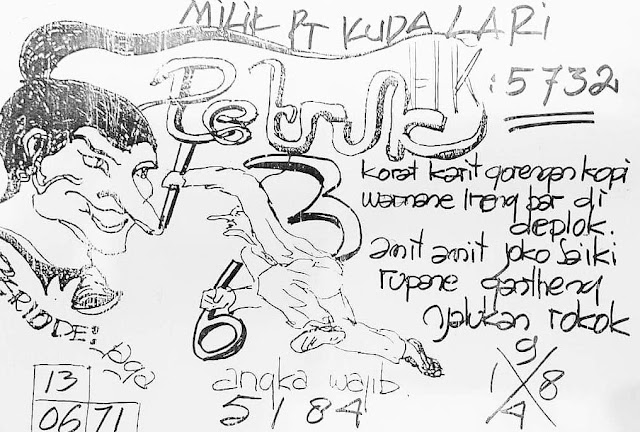 MILIK PT KUDA LARI
Petruk
EK : 5732
3
korat karit gorengan kopi
warnane Ireng bar di
deplok.
amit amit joko saiki
rupane gantheng
njalukan rokok
6
: jaga
13
06 71
angka wajib.
5184
9
1 8
4